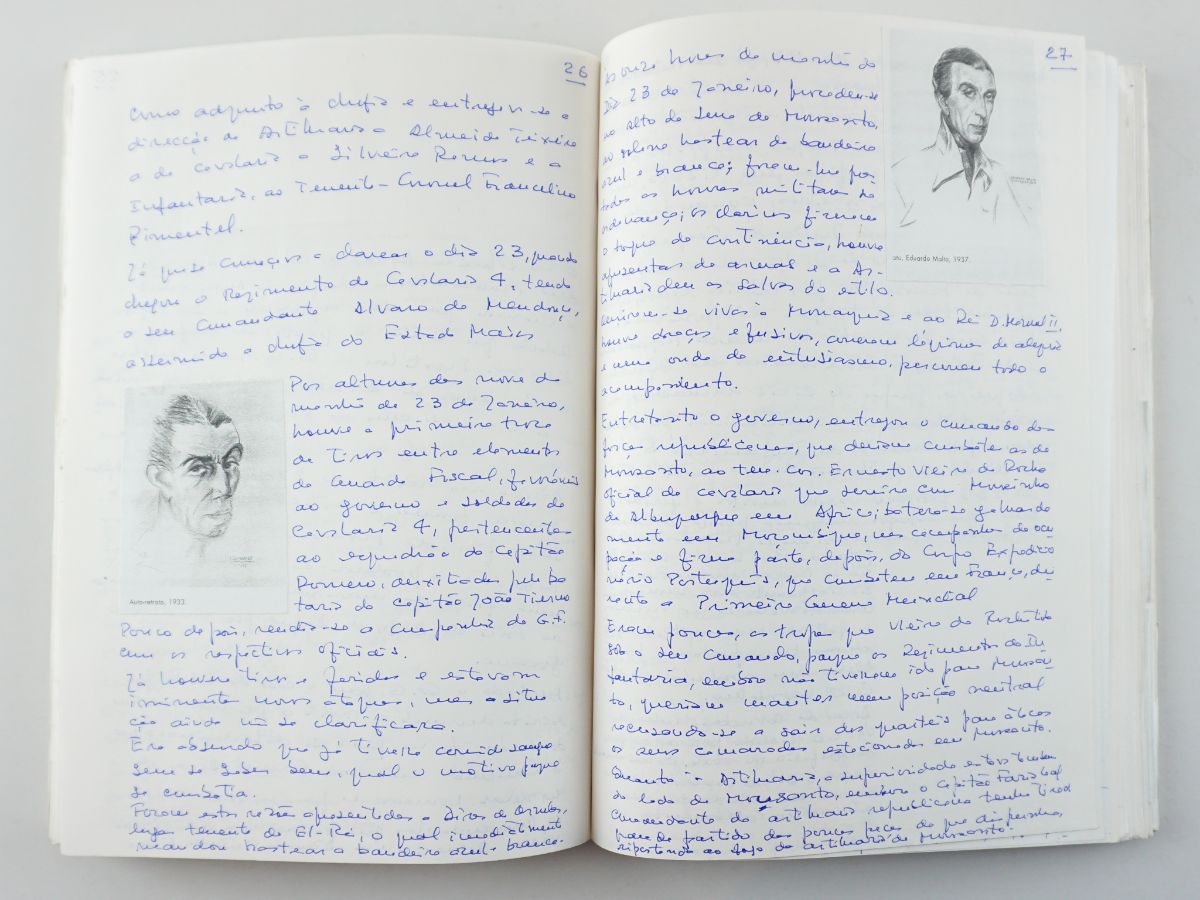 26
como adjunto à chefia e entregou-se a
direcção de Artilharia a Almeida Teixeira
a de Cavalaria a Silveira Ramos e a
Infantaria, ao Tenente-Coronel Francelino
Pimentel.
Já quase começava a clarear o dia 23, quando
chegou o Regimento de Cavalaria 4, tendo
o seu Comandante Alvaro de Mendonça,
assumido a chefia do Estado Maior
Por alturas das nove da
manhã de 23 de Janeiro,
houve a primeira troca
de tiros entre elementos
da Guarda Fiscal, favoráveis
ao governo e soldados de
Cavalaria 4, pertencentes
ao esquadrão do Capitão
Romero, auxiliados pela ba
taria do Capitão João Tierno
Auto-retrato, 1933.
Pouco depois, rendia-se a Companhia da G.F.
com os respectivos oficiais.
Já houvera tiros e feridos e estavam
iminentes novos ataques, mas a situa
ção ainda não se clarificara.
Era absurdo que já tivesse corrido sangue
sem se saber bem, qual o motivo porque
se combatia.
Foram estas razões apresentadas a Aires de Ornelas,
lugar tenente de El-Rei, o qual imediatamente
mandou hastear a bandeira azul e branca.
27
Às onze horas da manhã do
Dia 23 de Janeiro, procedeu-se
no alto da Serra de Monsanto,
ao solene hastear da bandeira
azul e branca; foram-lhe
todas as honras militares da
ordenança; os clarins fizeram
o toque de continência, houve
apresentar de armas e a Ar-
tilharia deu as salvas do estilo.
vivas à Monarquia e ao Rei D. Manuel II,
houve abraços efusivos, correram lágrimas de alegria
e uma onda de entusiasmo, percorreu todo o
acampamento.
Entretanto o governo, entregou o comando das
forças republicanas, que deviam combater as de
Monsanto, ao ten. cor. Ernesto Vieira da Rocha
oficial de cavalaria que servira com Mouzinho
de Albuquerque em África; batera-se galharda
mente em Moçambique, nas campanhas de ocu
pação e fizera parte, depois, do Corpo Expedicio
nário Português, que combateu em França, du
rante a Primeira Guerra Mundial
Eram poucas, as tropas que Vieira da Rocha tinha
sob o seu comando, porque os Regimentos de In
fantaria, embora não tivessem ido para Monsan
to, queriam manter uma posição neutral
recusando-se a sair dos quartéis para
os seus camaradas estacionados em Monsanto.
Quanto à Artilharia, a superioridade estava também
do lado de Monsanto, embora o Capitão
Comandante da artilharia republicana tenha tirado
grande partido das poucas peças de que dispunha,
ripostando ao fogo da artilharia de Monsanto.
ato, Eduardo Malta, 1937.